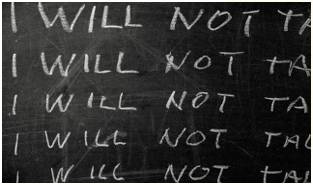 I WILL NOT TA
I WILL NOT TA
I WILL NOT TA
I WILL NOT TAL
I WILL NOT TAL